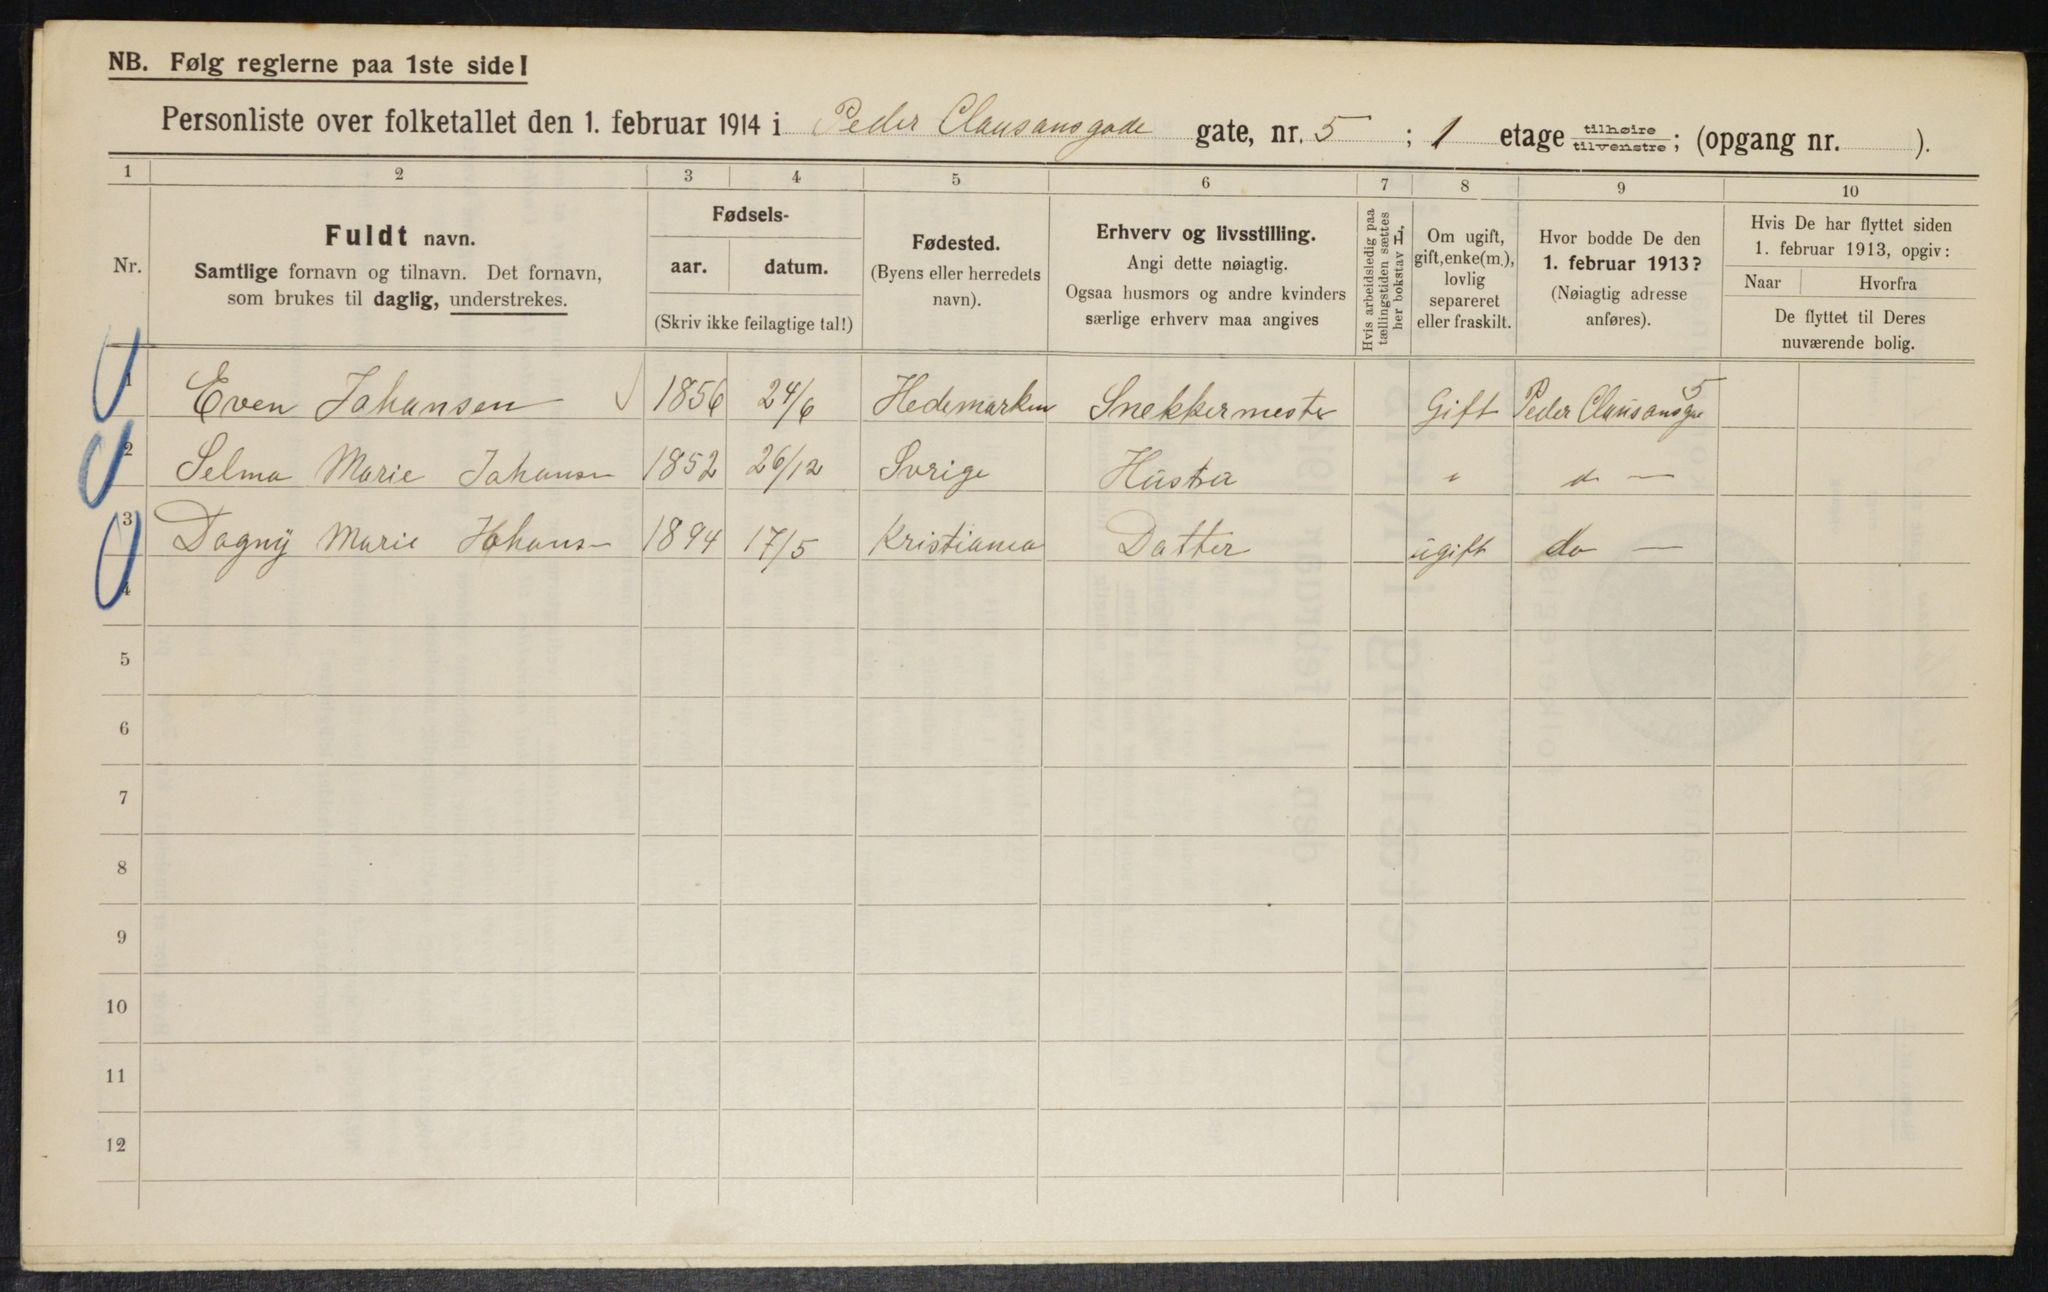 NB. Følg reglerne paa 1ste side!
Personliste over folketallet den 1. februar 1914 i Peder Clausansgade gate, nr. 5 ; 1 etage tilhøire tilvenstre ; (opgang nr. ).
1 2 3 4 5 6 7 8 9 10
Nr.
Fuldt navn.
Samtlige fornavn og tilnavn. Det fornavn,
som brukes til daglig, understrekes.
Fødsels-
aar. datum.
(Skriv ikke feilagtige tal!)
Fødested.
(Byens eller herredets
navn).
Erhverv og livsstilling.
Angi dette nøiagtig.
Ogsaa husmors og andre kvinders
særlige erhverv maa angives
Hvis arbeidsledig paa
tællingstiden sættes
her bokstav H.
Om ugift,
gift, enke(m.),
lovlig
separeret
eller fraskilt.
Hvor bodde De den
1. februar 1913?
(Nøiagtig adresse
anføres).
Hvis De har flyttet siden
1. februar 1913, opgiv:
Naar Hvorfra
De flyttet til Deres
nuværende bolig.
1 Even Johansen 1856 24/6 Hedemarken Snekkermester Gift Peder Clausansgae 5
2 Selma Marie Johansn 1852 26/12 Sverige Hustru " d —
3 Dagny Marie Johansn 1894 17/5 Kristiania Datter ugift do —
4
5
6
7
8
9
10
11
12